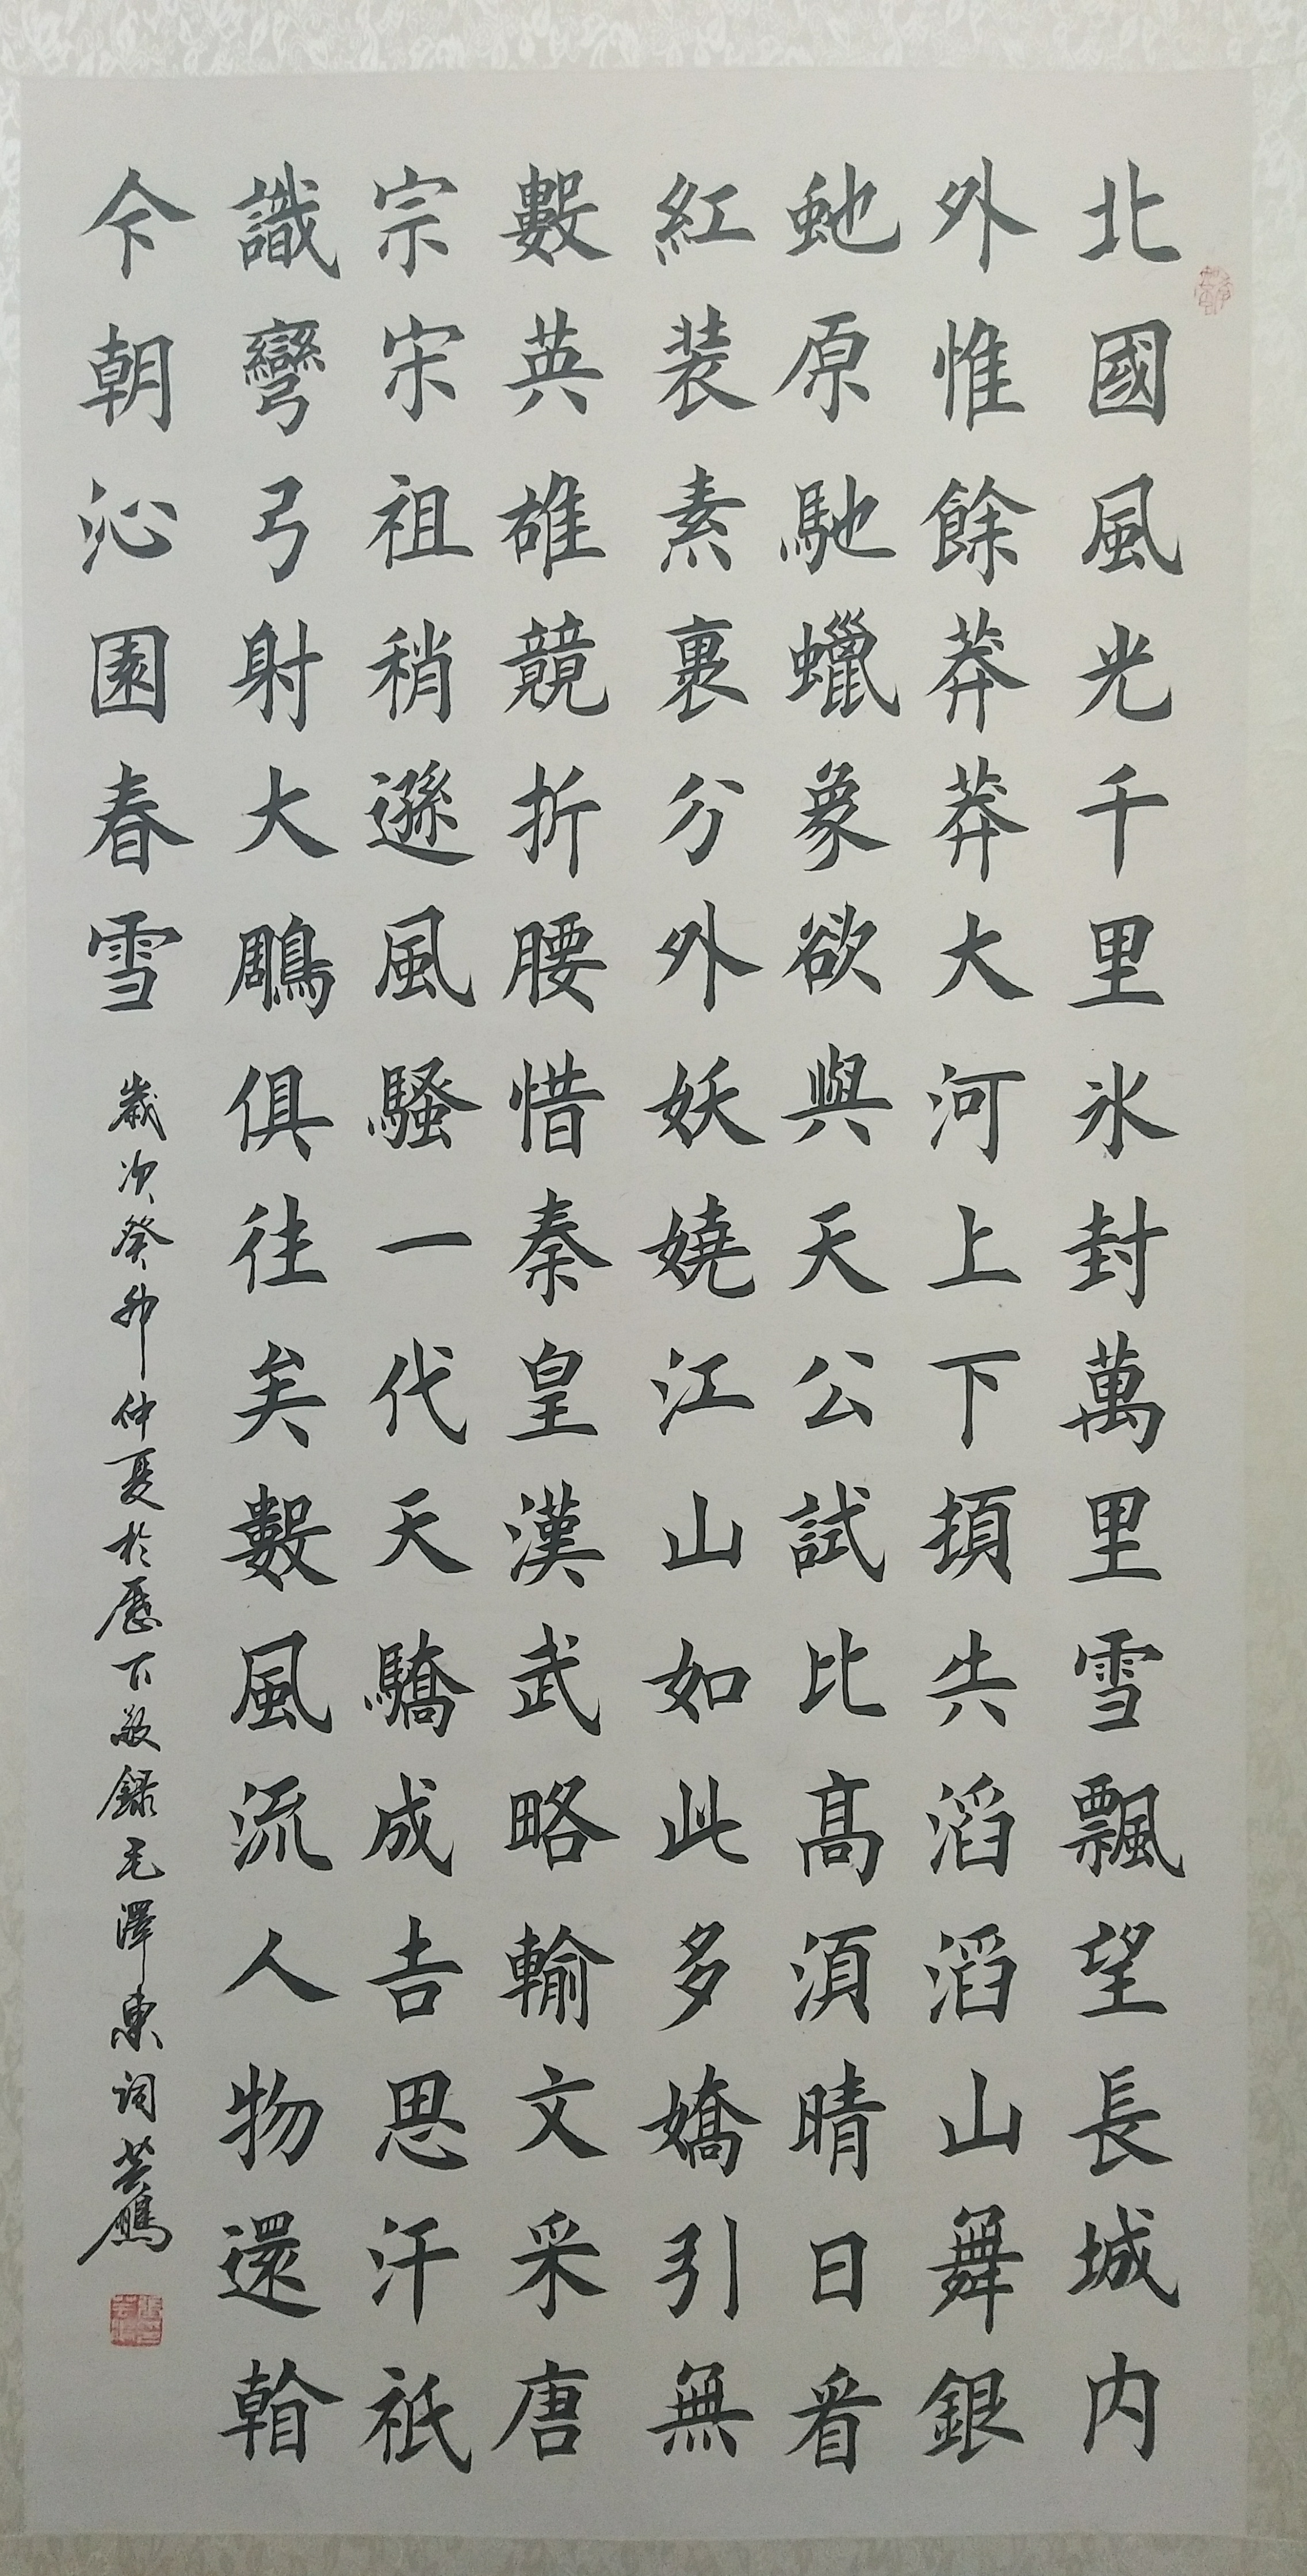 北國風光千里氷封萬里雪飄望長城内
外惟餘莽莽大河上下頓失滔滔山舞銀
虵原馳蠟象欲與天公試比髙湏晴日看
紅装素裹分外妖嬈江山如此多嬌引無
數英雄競折腰惜秦皇漢武略輸文采唐
宗宋祖稍遜風騷一代天驕成吉思汗祇
識彎弓射大鵰俱往矣數風流人物還看
今朝沁園春雪 歲次癸卯仲夏於歷下敬録毛澤東詞芸鵬